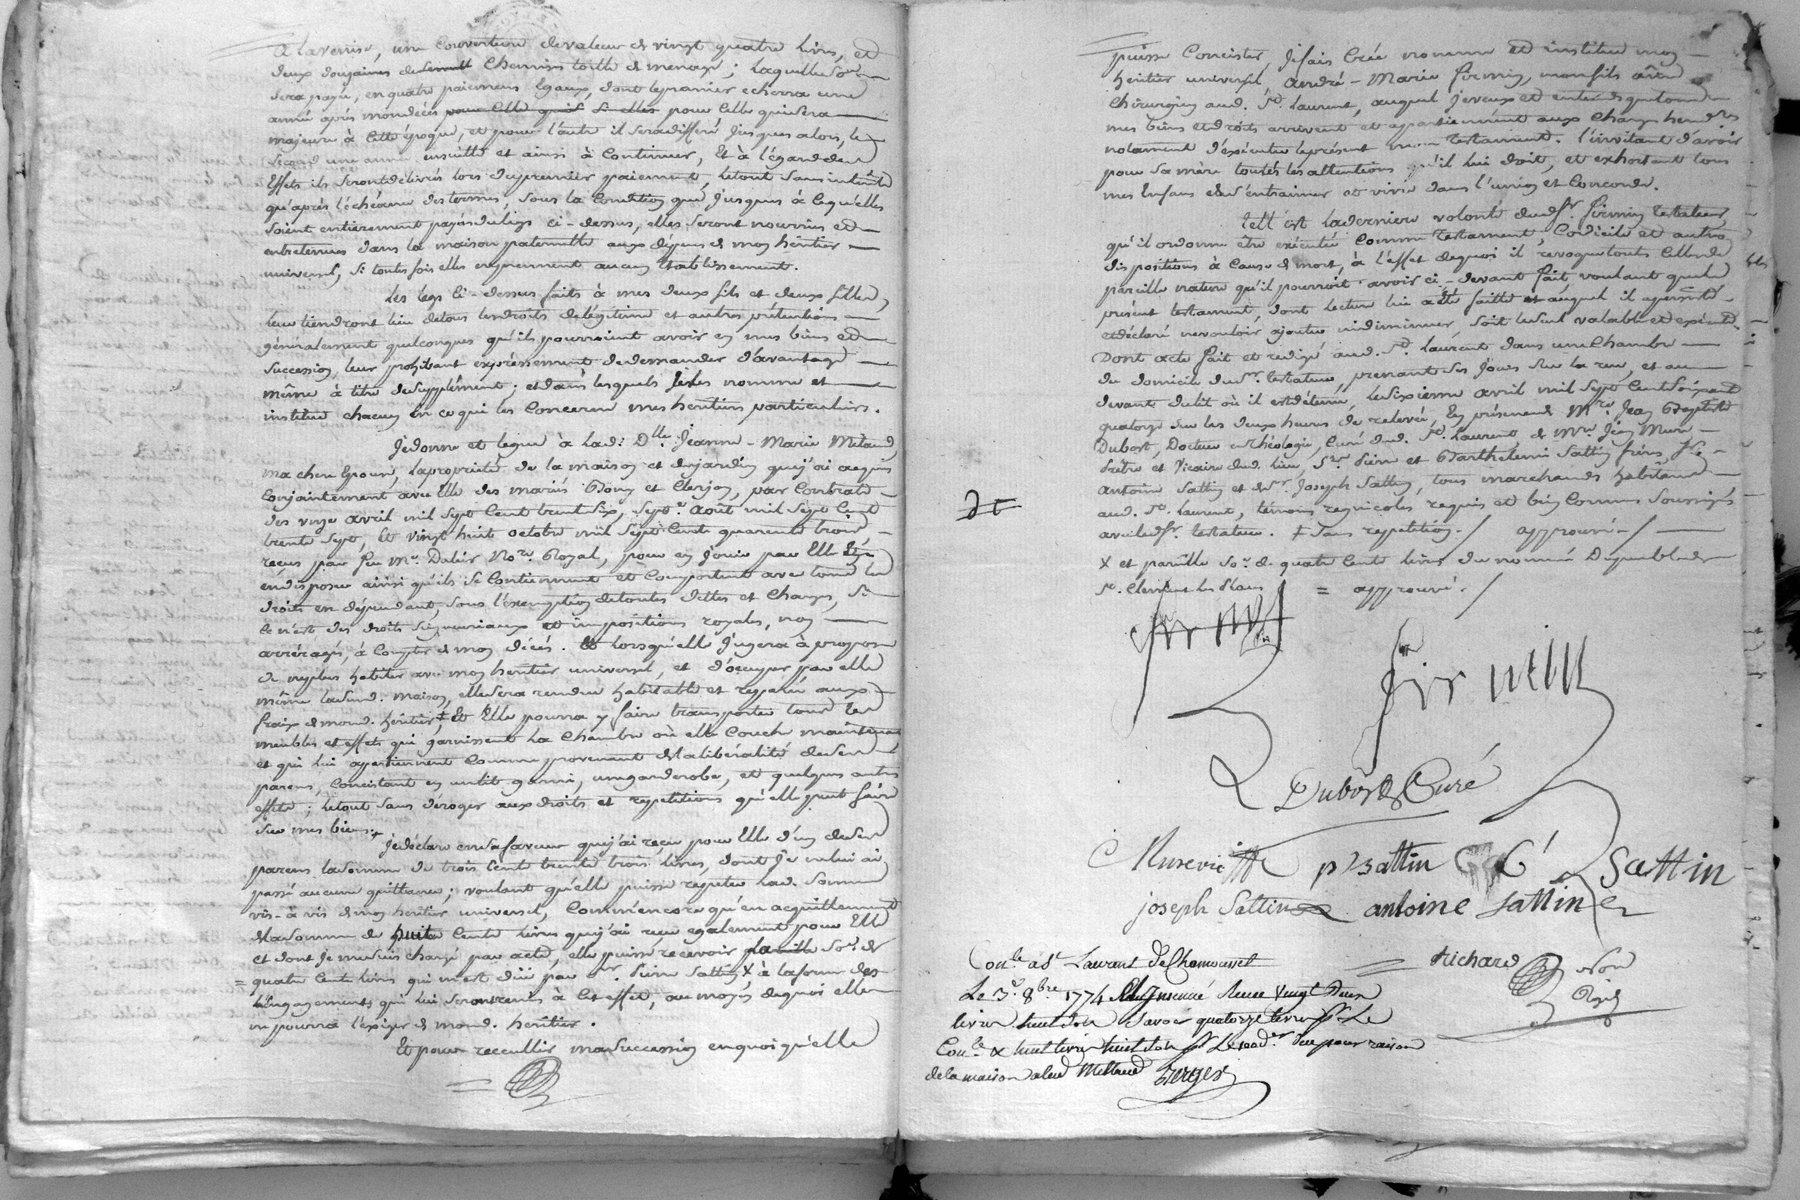 a la venise, une couverture de valeur de vingt quatre livres, et
deux douzaines de chemises toille de menage ; laquelle somme
sera payé, en quatre paiemens Egaux, dont le premier echerra une
année après mon décés pour celle qui sera
majeure à cette époque, et pour l'autre il sera differé jusques alors, le
second une année ensuitte et ainsi à continuer, Et à l'égard des
Effets ils seront délivrés lors du premier paiement, le tout sans intérêts
qu'après l'échéance des termes, sous la condition que jusques à ce qu'elles
soient entièrement payés du legs ci-dessus, elles seront nourries et
entretenues dans la maison paternelle aux dépens de mon héritier
universel, si toutes fois elles ne prennent aucun Etablissement.
Les legs ci-dessus faits à mes deux fils et deux filles,
leur tiendront lieu de tous les droits de légitime et autres prétentions
généralement quelconques qu'ils pourroient avoir en mes biens et
succession, leur prohibant expressément de demander d'avantage
même à titre de supplément ; et dans lesquels je les nomme et
institue chacun en ce qui les concerne mes héritiers particuliers.
Je donne et legue à lad. Dlle Jeanne-Marie Milaud,
ma chere Epouse, la propriété de la maison et du jardin que j'ai acquis
conjointement avec Elle des mariés Bony et Clerjon, par contrats
des onze avril mil sept cent trente six, sept août mil sept cent
trente sept, et vingt huit octobre mil sept cent quarente trois,
reçus par feu Mr. Dalier Nore Royal, pour en jouir par Elle
en disposer ainsi qu'ils se contiennent et comportent avec tous les
droits en dépendant, sous l'exemption de toutes dettes et charges, si
ce n'est des droits seigneuriaux et impositions royales, non
arréragés, à compter de mon décés. Et lorsqu'elle jugera à propos
de ne plus habiter avec mon héritier universel, et d'occuper par elle
même lasusd. maison, elle sera rendue habitable et reparée aux
fraix de mond. héritier, Et Elle pourra y faire transporter tous les
meubles et effets qui garnissent la chambre où elle couche maintenant
et qui lui appartiennent comme provenant de la libéralité de ses
parens, consistant en un lit garni, une garderobe, et quelques autres
effets ; le tout sans déroger aux droits et repetitions qu'elle peut faire
sur mes biens.
Je déclare en sa faveur que j'ai reçu pour Elle d'un de ses
parens la somme de trois cent trente trois livres, dont je ne lui ai
passé aucune quittance ; voulant qu'elle puisse repeter lad. somme
vis-à vis de mon héritier universel, comme encore qu'en acquittement
de la somme de huit cents livres que j'ai reçu egalement pour Elle
et dont je me suis chargé par acte, elle puisse recevoir pareille so.e de
= quatre cents livres qui m'est düe par sr. Pierre Sattin X à la forme des
engagements qui lui seront remis à cet effet, au moyen de quoi elle
ne pourra l'exiger de mond. héritier.
Et pour receuillir ma succession en quoi qu'elle
puisse concister, j'ai fais créé nommé et institué mon
héritier universel André-Marie firmin, mon fils ainé
chirurgien aud. St. Laurent, auquel je veux et entends que tous
mes biens et droits arrivent et appartiennent aux charges hered.res
notament d'exécuter le présent mon testament. l'invitant d'avoir
pour sa mère toutes les attentions qu'il lui doit, et exhortant tous
mes Enfans de s'entraimer et vivre dans l'union et concorde.
Tell' est la derniere volonté dud. sr. firmin testateur,
qu'il ordonne être exécutée comme testament, codicile et autres
dispositions à cause de mort, à l'effet de quoi il revoque toutes celles de
pareille nature qu'il pourroit avoir ci-devant fait, voulant que le
présent testament, dont lecture lui a été faitte et auquel il a persisté
et déclaré ne vouloir ajouter ni diminuer, soit le seul valable et exécuté.
Dont acte fait et redigé aud. St. Laurent dans une chambre
du domicile du sr. testateur, prenant ses jours sur la rue, et au
devant du lit où il est détenu, le sixieme avril mil sept cent soixante
quatorze sur les deux heures de relevée, En présence de Mre Jean Baptiste
Dubost, Docteur en théologie, curé dud. St. Laurent, de Mre Jean Mure
Prêtre et Vicaire dud. lieu, Srs. Pierre et Barthelemi Sattin freres, sr.
Antoine Sattin et de Sr. Joseph Sattin, tous marchands habitans
aud. St. Laurent, témoins regnicoles requis et bien connus soussignés
avec led. sr. testateur. + sans repetition ./ approuvé ./
X et pareille so.e de quatre cent livres du nommé
St. Clement les Places = approuvé ./
firmin
firmin
Dubost Curé
Mure vic
p Sattin B Sattin
joseph Sattin antoine Sattin
Richard Nore Royal
Con.lé à St Laurent de Chamousset
Le 3e 8bre 1774 & Insinué Reçu vingt deux
livres huit sols Savoir quatorze livres pr Le
Con.le & huit livres huit sols pr Le cod.er Deu pour raison
de la maison aleu Millaud Berger